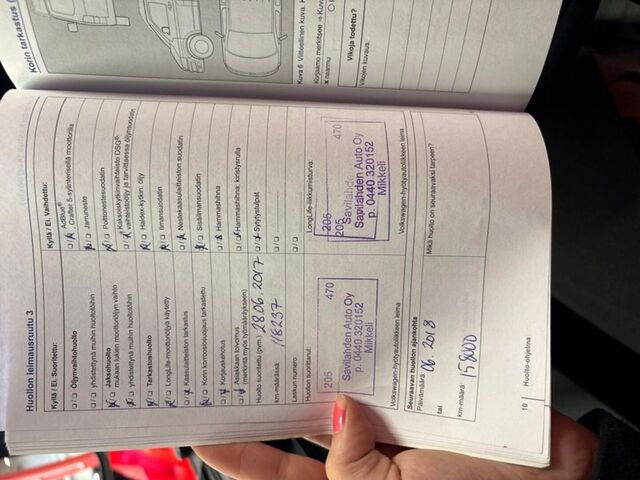 Huollon leimausruutu 3
Kyllä / Ei. Suoritettu:
Öljynvaihtohuolto
yhdistettynä muihin huoltotöihin
Jaksohuolto
mukaan lukien moottoriöljyn vaihto
yhdistettynä muihin huoltotöihin
Tarkastushuolto
LongLife-moottoriöljyä käytetty
Kaasulaitteiston tarkastus
Korin korroosiosuojaus tarkastettu
Korjauskehotus
Asiakkaan toivomus
(merkintä myös työmääräykseen)
Huolto suoritettu (pvm.): 28.06.2017
km-määrässä 118237
Laskun numero:
Huollon suorittanut:
205 470
Savilahden Auto Oy
p. 0440 320152
Mikkeli
Volkswagen-hyötyautoliikkeen leima
Seuraavan huollon ajankohta
Päivämäärä: 06. 2018
tai
km-määrä: 158000
10 Huolto-ohjelma
Kyllä / Ei. Vaihdettu:
AdBlue®
Crafter 5-sylinterisellä moottorilla
Jarruneste
Polttonestesuodatin
Kaksoiskytkinvaihteisto DSG®:
vaihteistoöljy ja tarvittaessa öljynsuodatin
Haldex-kytkin: öljy
Ilmansuodatin
Nestekaasulaitteiston suodatin
Sisäilmansuodatin
Hammashihna
Hammashihna: kiristysrulla
Sytytystulpat
LongLife-liikkumisturva:
205 470
205
Savilahden Auto Oy
p. 0440 320152
Mikkeli
Volkswagen-hyötyautoliikkeen leima
Mikä huolto on seuraavaksi tarpeen?
Korin tarkastus
Kuva 6 Viitteellinen kuva.
Korjaamo merkitsee
x naarmu
Vikoja todettu?
Vikojen kuvaus: